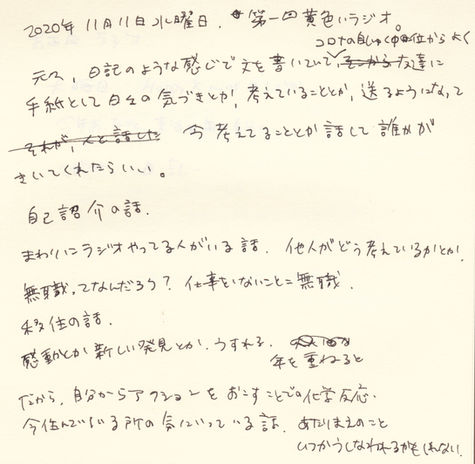 2020年11月11日 水曜日. 第一回 黄色いラジオ。
コロナの自しゅく中位からよく
元々、日記のような感じで文を書いていて、そこから友達に
手紙として日々の気づきとか、考えていることとか、送るようになって
それが、人と話した 今考えてることとか話して誰かが
きいてくれたらいい。
自己紹介の話.
まわりにラジオやってる人がいる話. 他人がどう考えているかとか.
無職ってなんだろう? 仕事をしないこと=無職.
移住の話.
感動とか新しい発見とか、うすれる.
年を重ねると
だから、自分からアクションをおこすことでの化学反応.
今住んでいる所の気にいっている話. あたりまえのこと
いつかうしなわれるかもしれない.